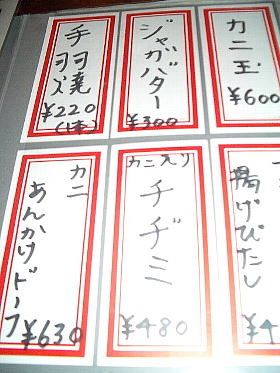 カニ玉
¥600
ジャガバター
¥300
手羽焼
¥220
(1本)
揚げびたし
¥4
カニ入り
チヂミ
¥480
カニ
あんかけドーフ
¥630